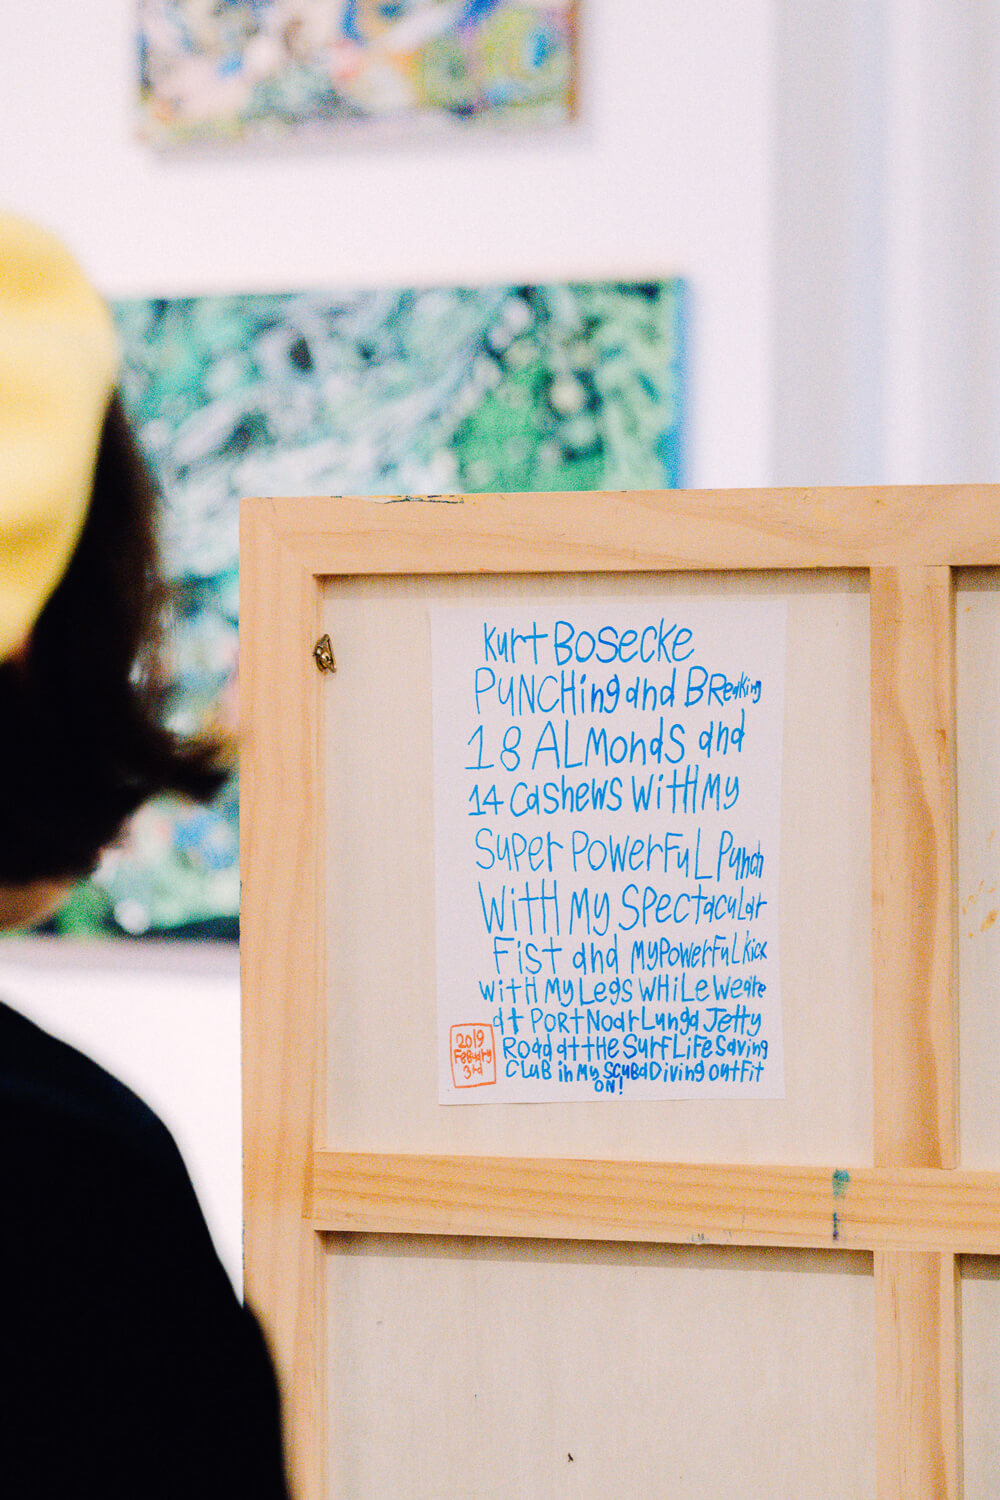 Kurt BOSECKE
PUNCHing and BReaking
18 ALMonds and
14 Cashews WitH My
SuPer POWerFuL Punch
WitH My SPectacuLar
Fist and MyPOWerFuL kick
WitH My Legs WHiLe We are
at POrt NOarLunga Jetty
ROad at tHe SurF LiFe Saving
CLuB in My SCuBa Diving OutFit
ON!
2019
FeBuary
3rd